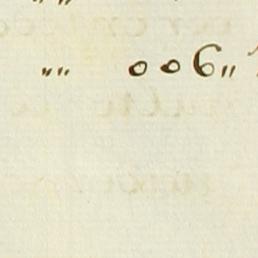 „ „
„ „ 0 0 6 „